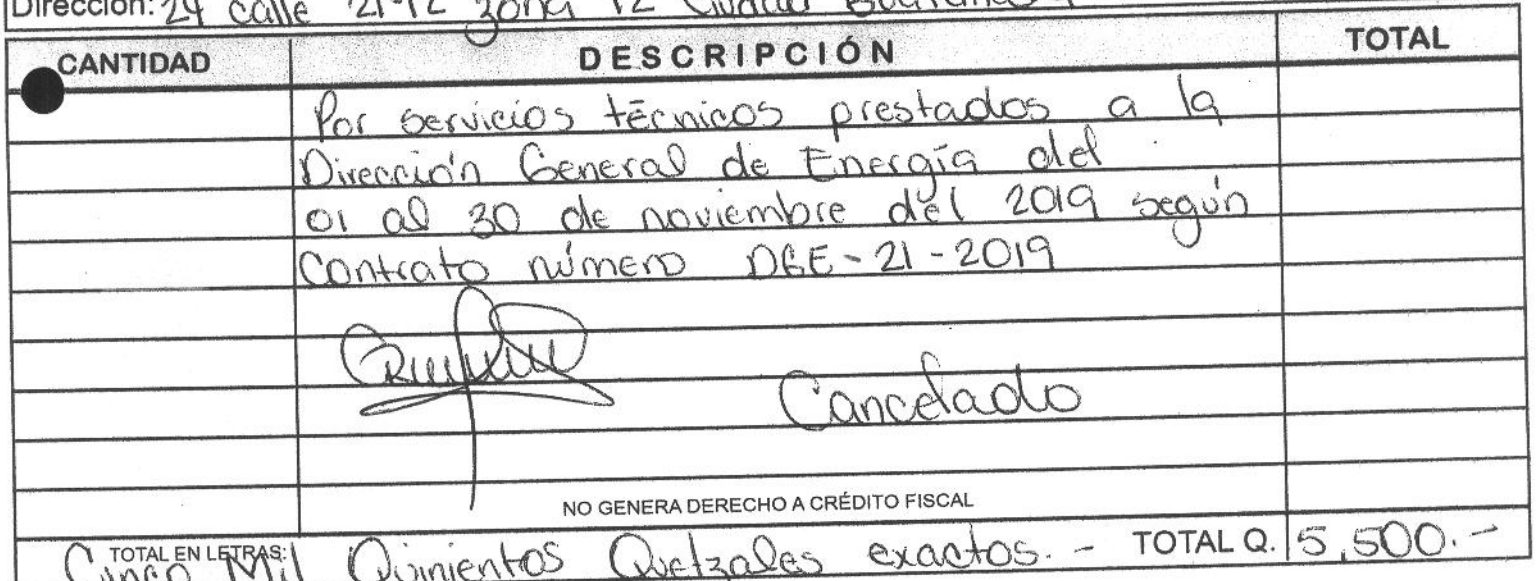 Dirección: 24 calle 21-12 zona 12 Ciudad Guatemala
CANTIDAD DESCRIPCIÓN TOTAL
Por servicios técnicos prestados a la
Dirección General de Energía del
01 al 30 de noviembre del 2019 según
Contrato número DGE-21-2019
Cancelado
NO GENERA DERECHO A CRÉDITO FISCAL
TOTAL EN LETRAS: Cinco Mil Quinientos Quetzales exactos.- TOTAL Q. 5,500.-